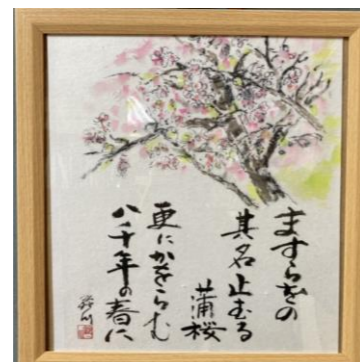 ますらをの
其名止むる
蒲桜
更にかをらむ
八千年の春に